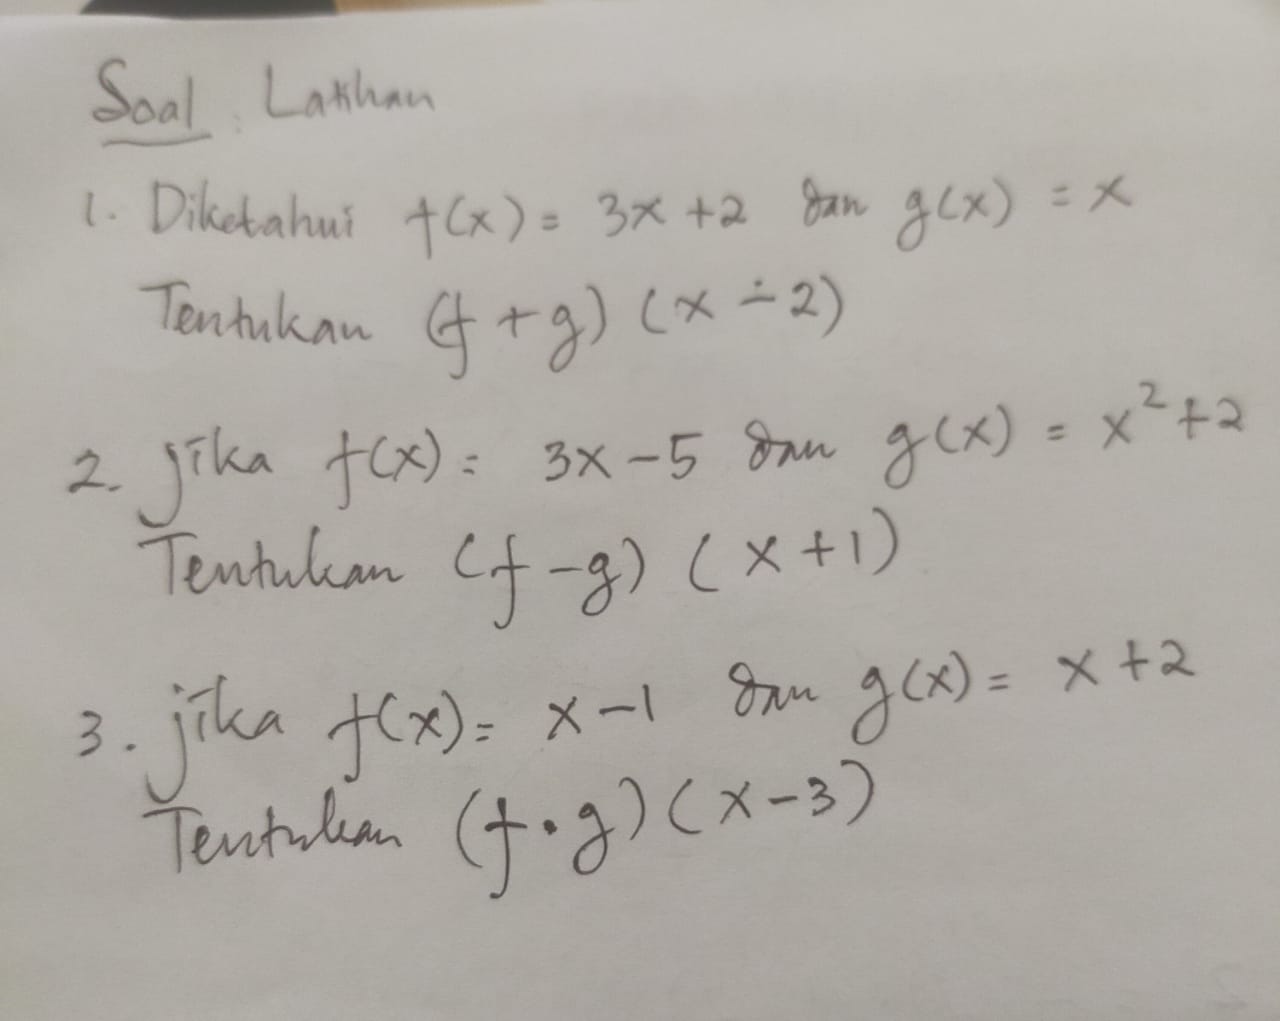 Soal Latihan
1. Diketahui f(x) = 3x + 2 dan g(x) = x
Tentukan (f + g) (x - 2)
2. jika f(x) = 3x - 5 dan g(x) = x² + 2
Tentukan (f - g) (x + 1)
3. jika f(x) = x - 1 dan g(x) = x + 2
Tentukan (f • g) (x - 3)